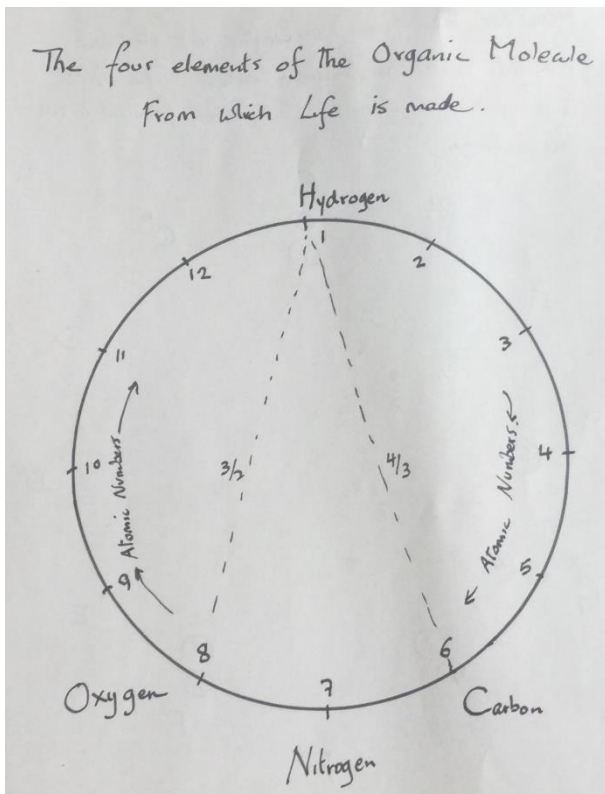 The four elements of the Organic Molecule
From which Life is made.
Hydrogen
1
2
3
4
5
6
7
8
9
10
11
12
3/2
4/3
Atomic Numbers
Atomic Numbers
Oxygen
Carbon
Nitrogen